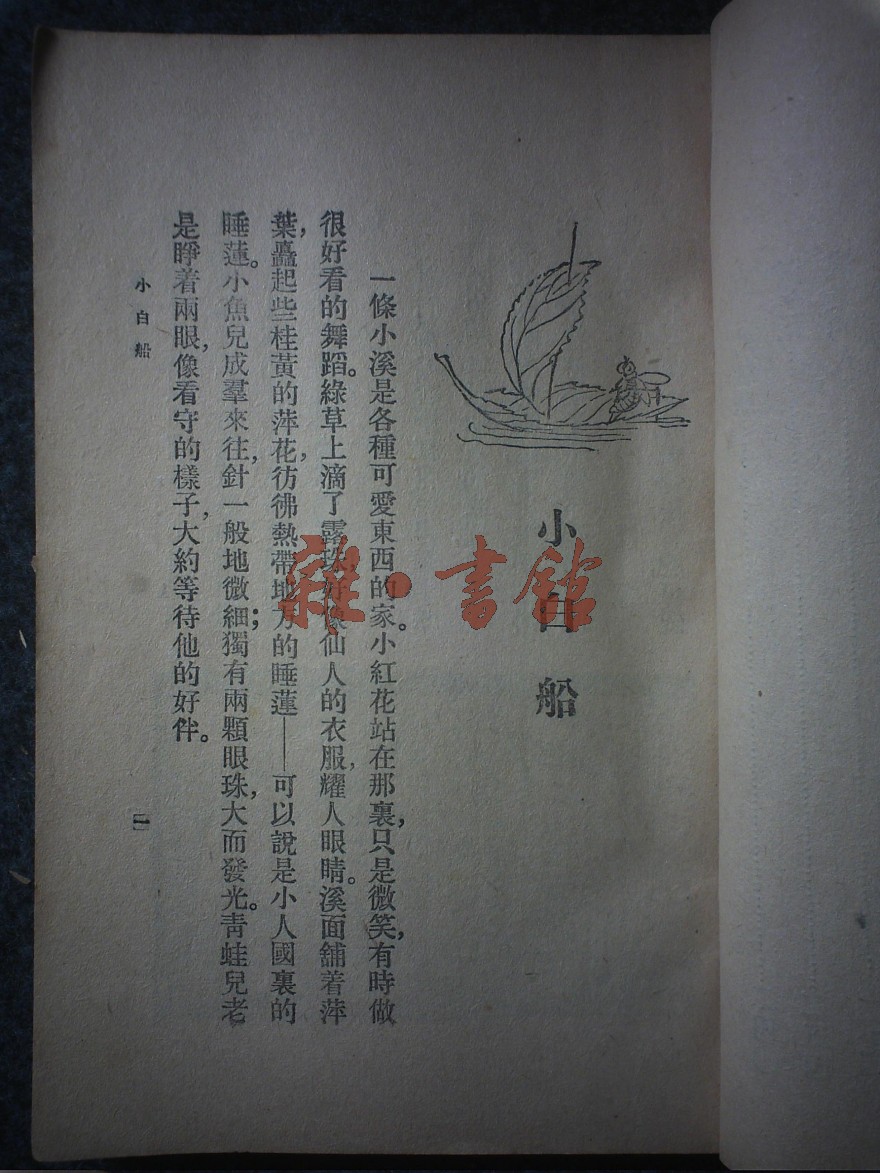 小白船
一條小溪是各種可愛東西的家。小紅花站在那裏，只是微笑，有時做
很好看的舞蹈。綠草上滴了露珠，好像仙人的衣服，耀人眼睛。溪面舖着萍
葉，矗起些桂黃的萍花，彷彿熱帶地方的睡蓮——可以說是小人國裏的
睡蓮。小魚兒成羣來往，針一般地微細；獨有兩顆眼珠，大而發光。青蛙兒老
是睜着兩眼，像看守的樣子，大約等待他的好伴。
小白船
一
雜·書館